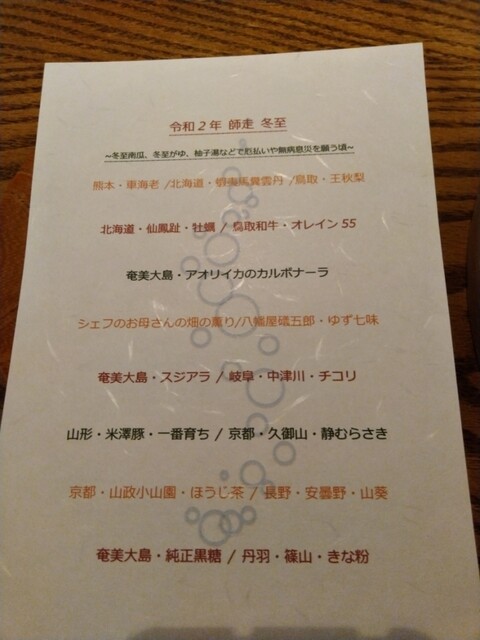 令和2年 師走 冬至
~冬至南瓜、冬至がゆ、柚子湯などで厄払いや無病息災を願う頃~
熊本・車海老 /北海道・蝦夷馬糞雲丹 /鳥取・王秋梨
北海道・仙鳳趾・牡蠣 / 鳥取和牛・オレイン55
奄美大島・アオリイカのカルボナーラ
シェフのお母さんの畑の薫り/八幡屋礒五郎・ゆず七味
奄美大島・スジアラ / 岐阜・中津川・チコリ
山形・米澤豚・一番育ち / 京都・久御山・静むらさき
京都・山政小山園・ほうじ茶 / 長野・安曇野・山葵
奄美大島・純正黒糖 / 丹羽・篠山・きな粉